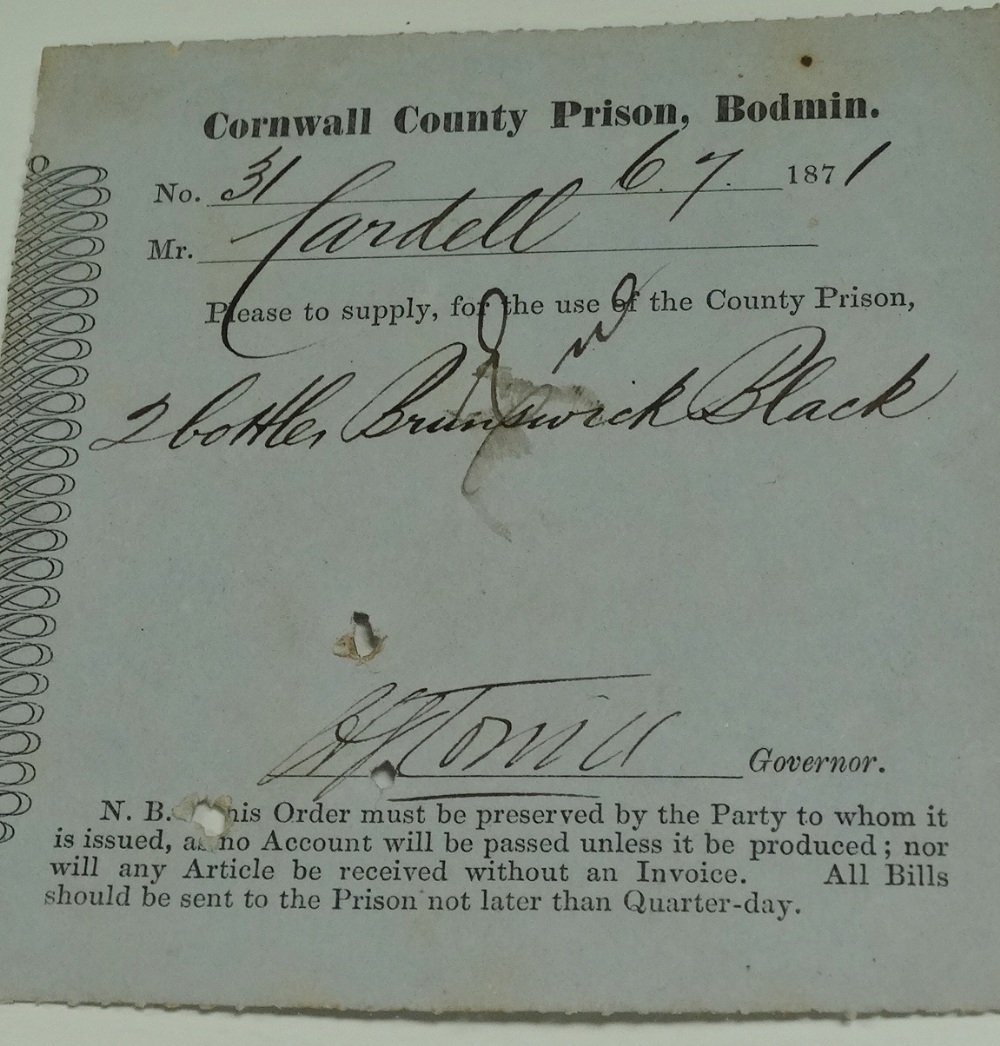 Cornwall County Prison, Bodmin.
No. 31 6. 7. 1871
Mr. Cardell
Please to supply, for the use of the County Prison,
2 bottles Brunswick Black
Governor.
N. B. This Order must be preserved by the Party to whom it
is issued, as no Account will be passed unless it be produced; nor
will any Article be received without an Invoice. All Bills
should be sent to the Prison not later than Quarter-day.